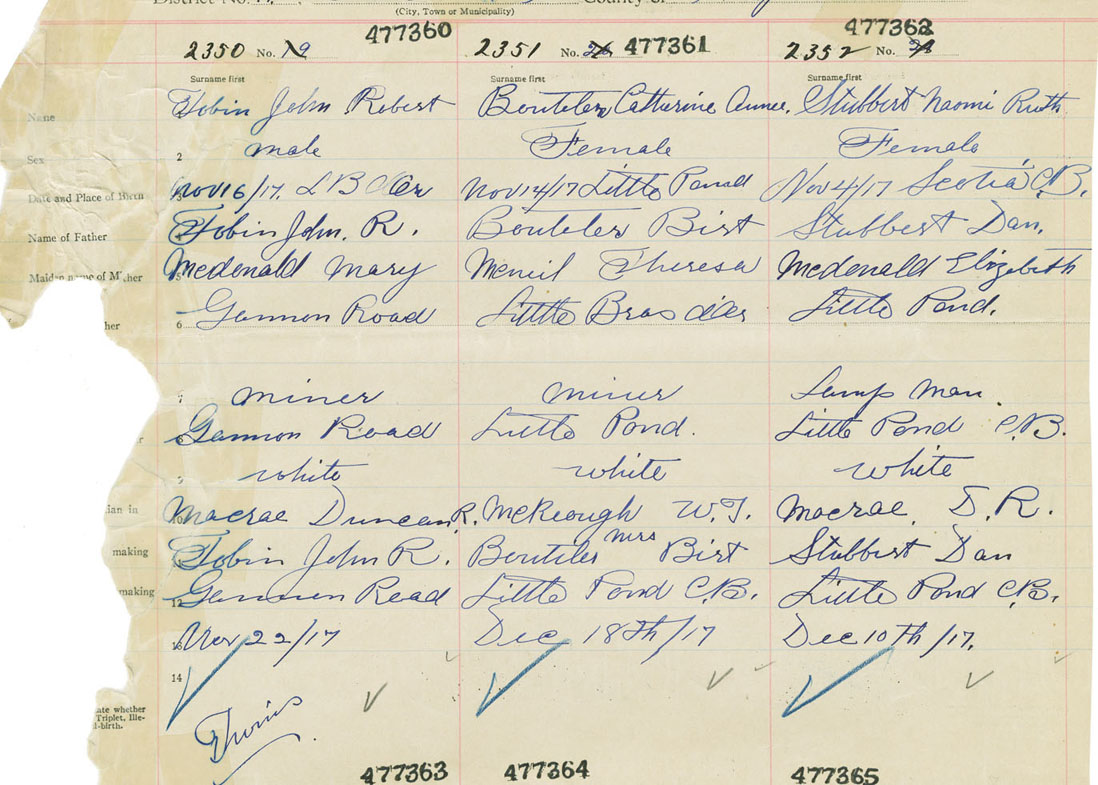 District No. County of
(City, Town or Municipality)
477360 477361 477362
2350 No. 19 2351 No. 2352 No.
Surname first Surname first Surname first
Name Tobin John Robert Boutelier Catherine Annee. Stubbert Naomi Ruth
Sex 2 male Female Female
Date and Place of Birth 3 Nov 16/17. L B d'Or Nov 14/17 Little Pond Nov 4/17 Scotia C.B.
Name of Father 4 Tobin John. R. Boutelier Birt Stubbert Dan.
Maiden name of Mother 5 Mcdonald Mary Mcneil Theresa Mcdonald Elizabeth
her 6 Gannon Road Little Bras d'Or Little Pond.
7 miner miner Lamp Man.
r 8 Gannon Road Little Pond. Little Pond C.B.
9 white white white
ian in 10 Macrae Duncan R. McKeough W.J. Macrae. D.R.
making 11 Tobin John R. Boutelier Mrs Birt Stubbert Dan
making 12 Gannon Road Little Pond C.B. Little Pond C.B.
13 Nov 22/17 Dec 18Th/17 Dec 10Th/17.
14
ate whether
Triplet, Ille-
l-birth.
Twins
477363 477364 477365